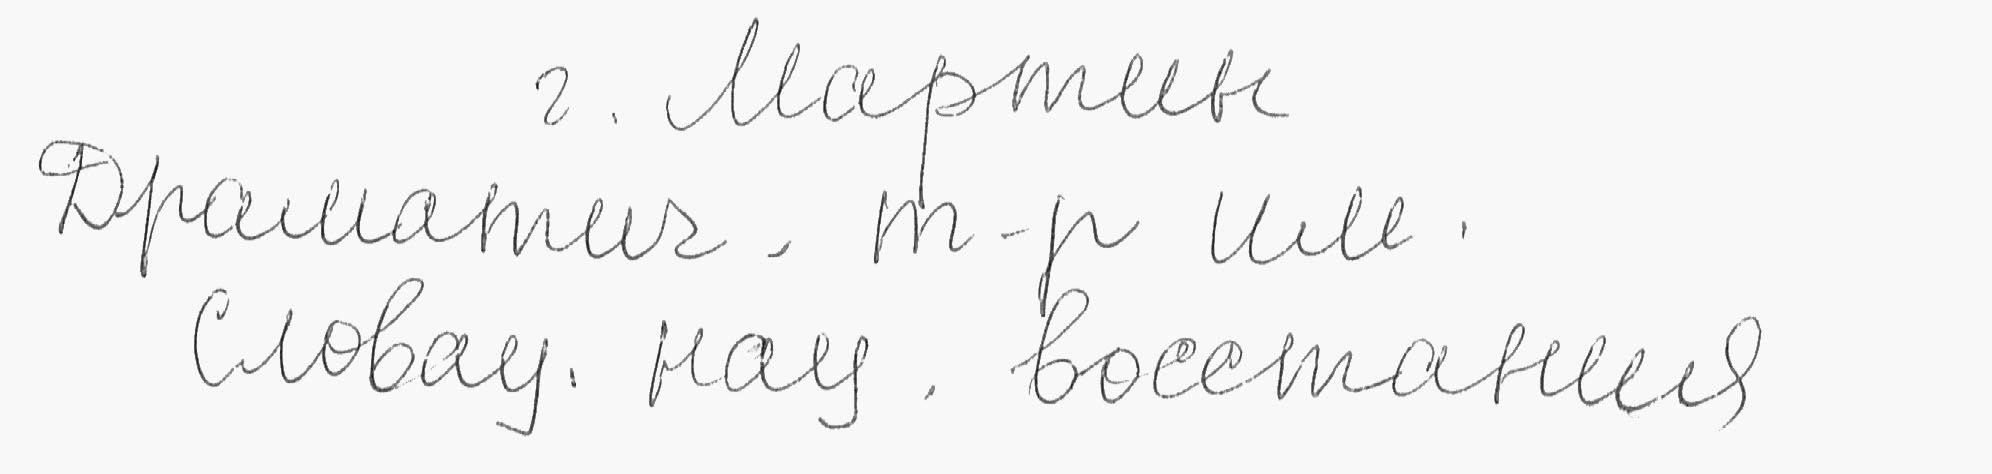 г. Мартин
Драматич. т-р им.
Словац. нац. восстания